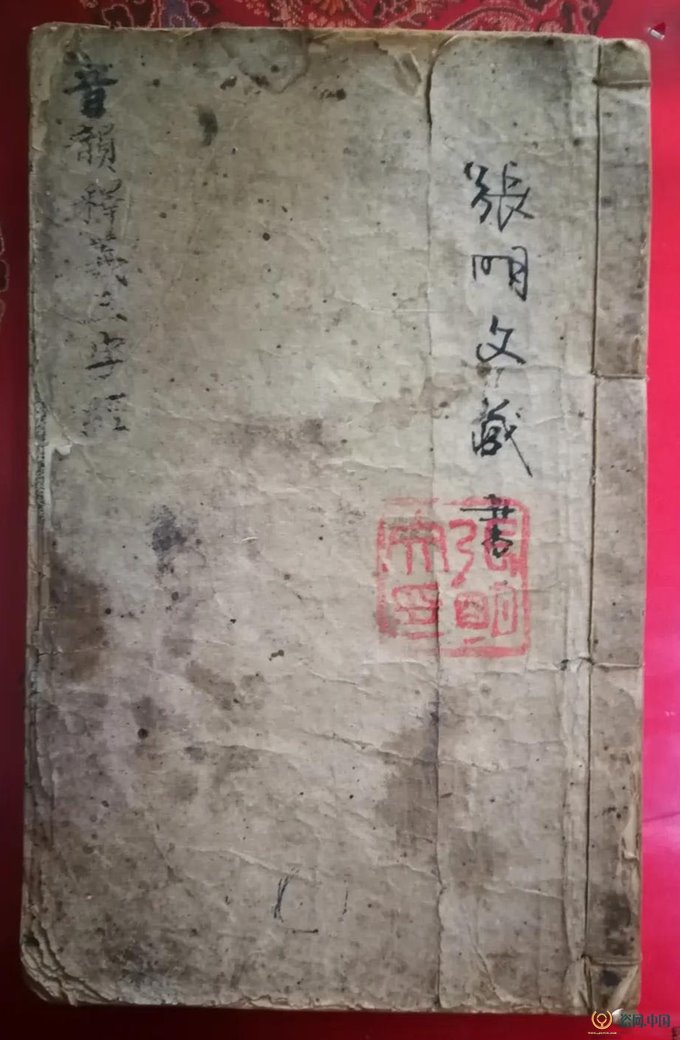 張明文藏書
張明
文印
音韻釋義三字經
盗网.中国